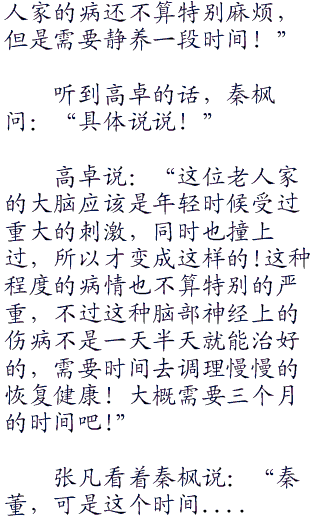 人家的病还不算特别麻烦，
但是需要静养一段时间！”
听到高卓的话，秦枫
问：“具体说说！”
高卓说：“这位老人家
的大脑应该是年轻时候受过
重大的刺激，同时也撞上
过，所以才变成这样的!这种
程度的病情也不算特别的严
重，不过这种脑部神经上的
伤病不是一天半天就能治好
的，需要时间去调理慢慢的
恢复健康！大概需要三个月
的时间吧!”
张凡看着秦枫说：“秦
董，可是这个时间....